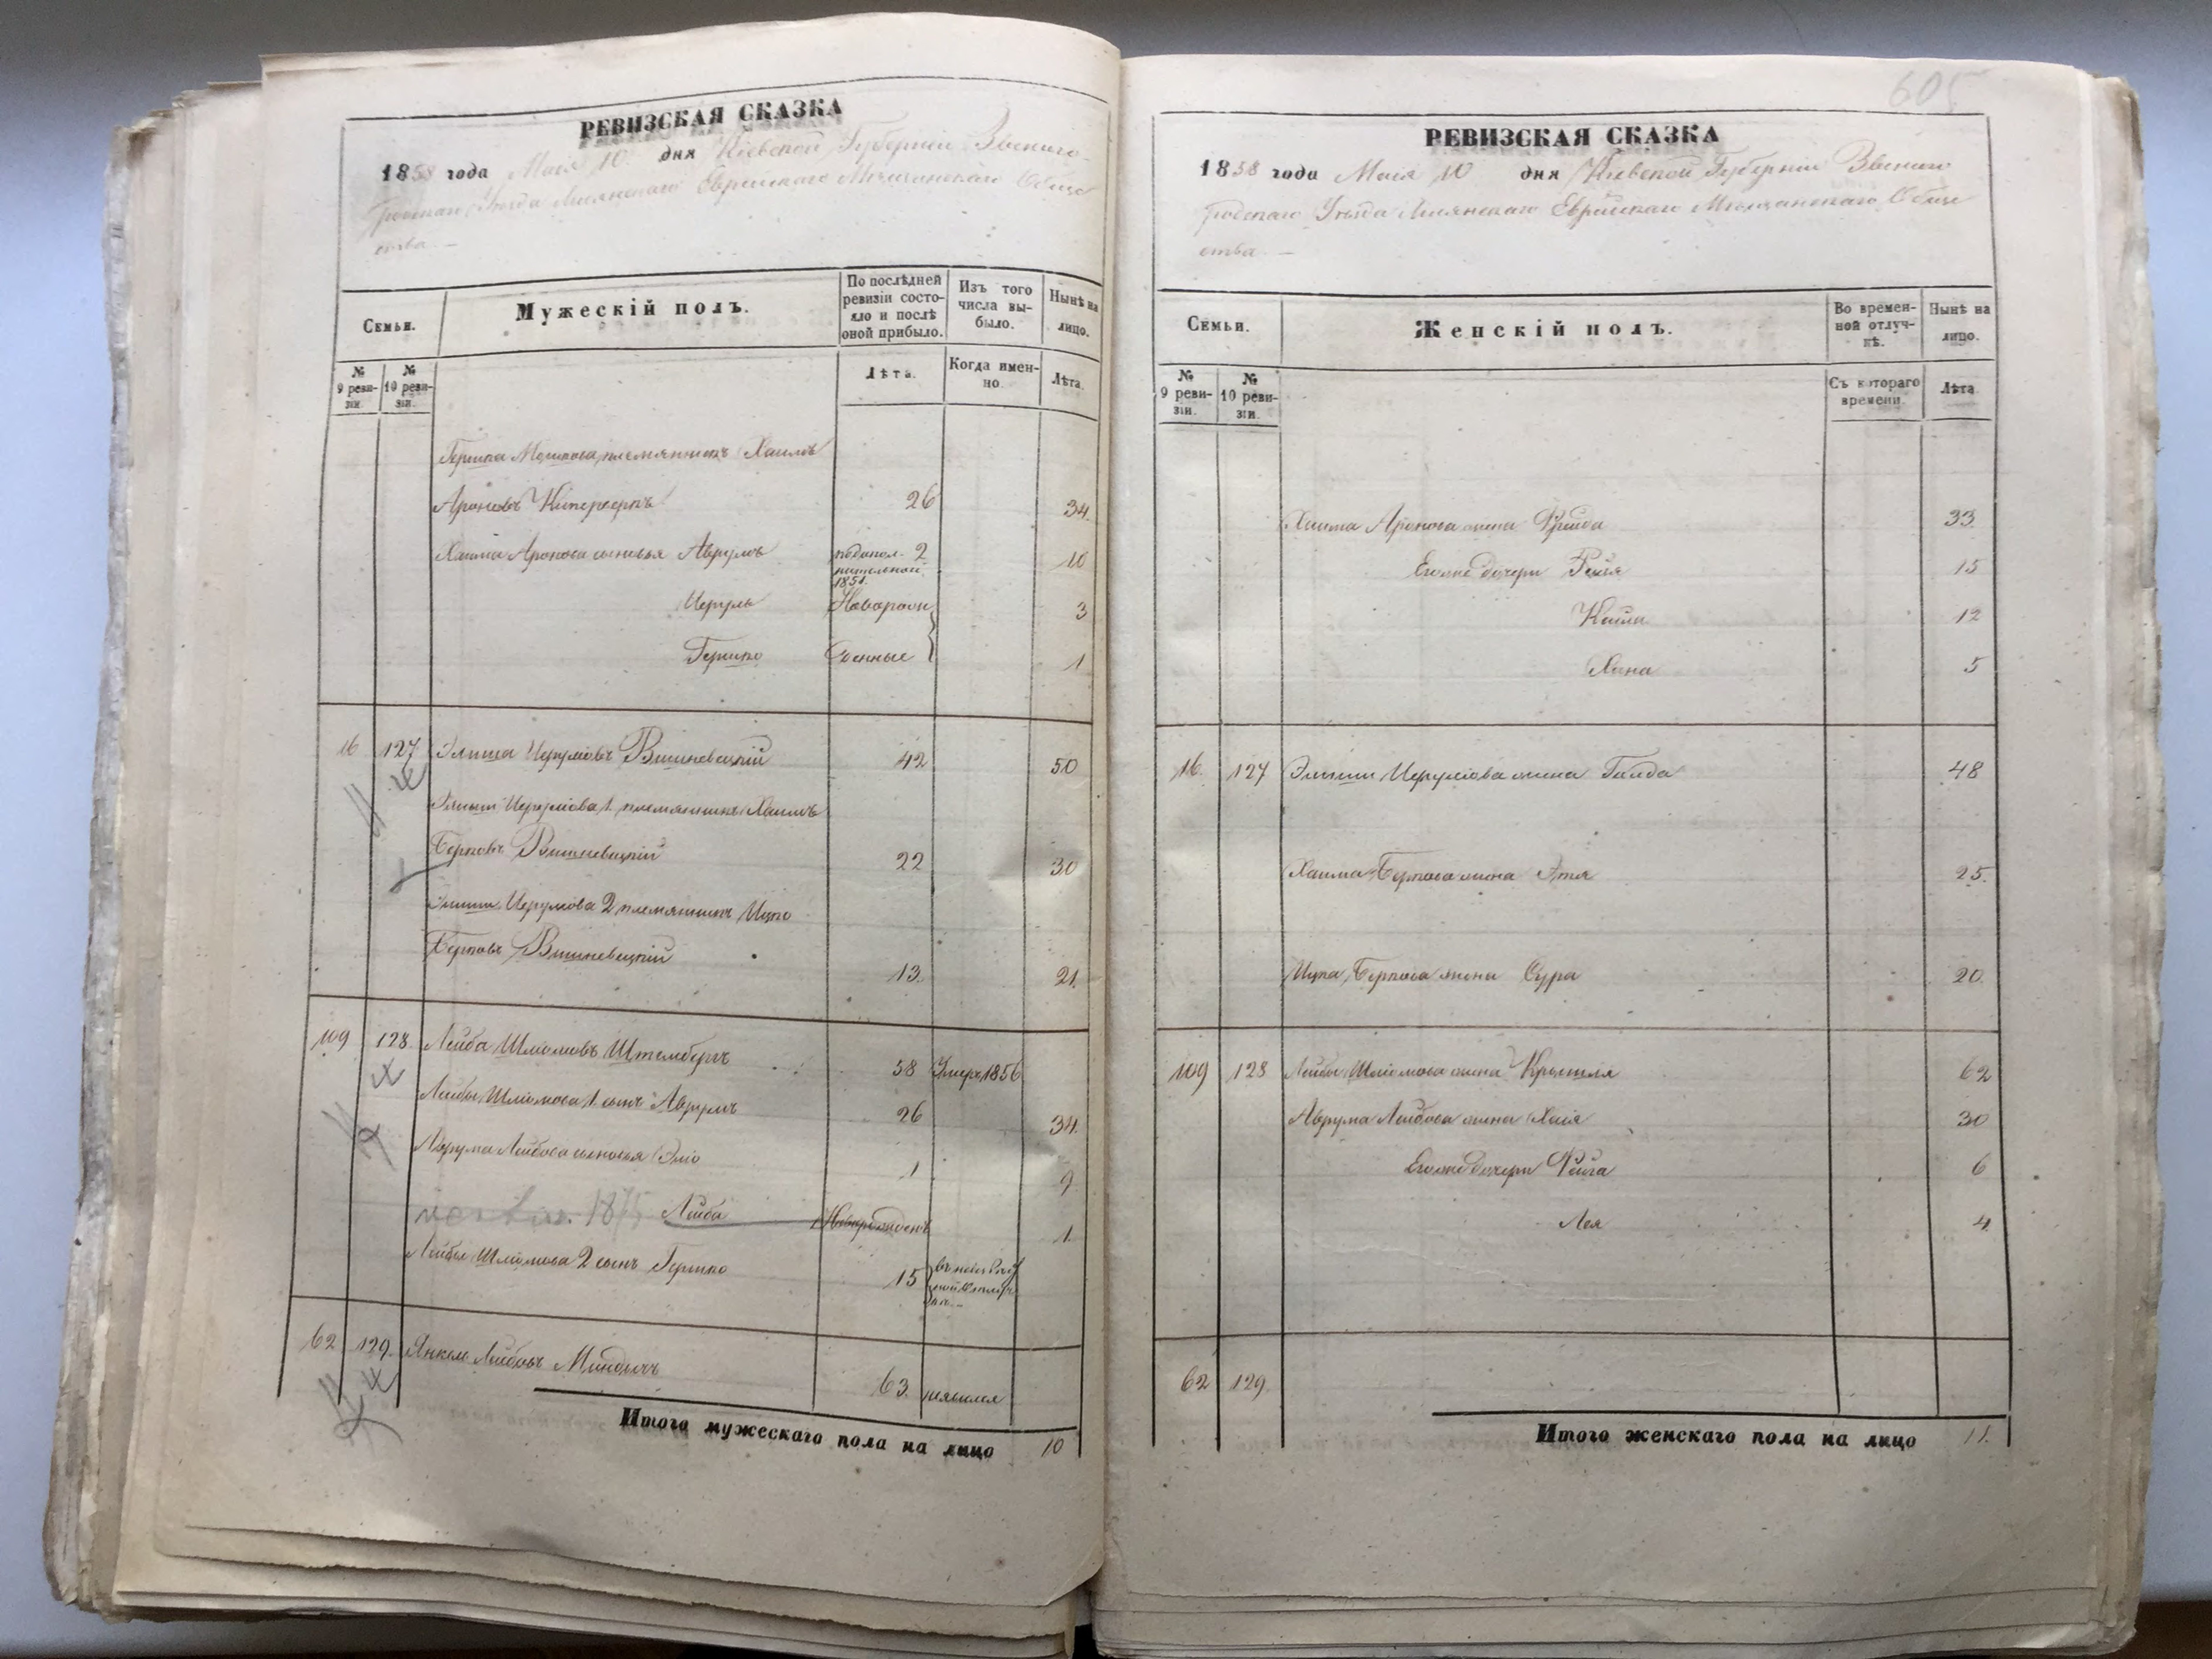 РЕВИЗСКАЯ СКАЗКА
1858 года Маія 10 дня Кіевской Губерніи Звениго-
родскаго Уѣзда Лисянскаго Еврейскаго Мѣщанскаго Обще
ства. —
Семьи.
Мужескій полъ.
По послѣдней ревизіи состояло и послѣ оной прибыло.
Изъ того числа выбыло.
Нынѣ на лицо.
№ 9 ревизіи.
№ 10 ревизіи.
Лѣта.
Когда именно.
Лѣта.
Гершка Мошкова племянникъ Хаимъ
Ароновъ 26 34.
Хаима Аронова сыновья Аврумъ 2 10
1851.
Новорож 3
Гершко денные 1
16 127 Элиша Вишневецкій 42 50
1. племянникъ Хаимъ
Берковъ Вишневецкій 22 30
2 племянникъ Ицко
Берковъ Вишневецкій 13. 21.
109 128. Лейба Шліомовъ Штемберъ 58 Умеръ 1856
Лейбы Шліомова 1. сынъ Аврумъ 26 34.
Аврума Лейбова сыновья Эліо 1 9
1875 Лейба Новорожденъ 1
Лейбы Шліомова 2 сынъ Гершко 15
62 129. Янкель Лейбовъ 63.
Итого мужескаго пола на лицо 10
605
РЕВИЗСКАЯ СКАЗКА
1858 года Маія 10 дня Кіевской Губерніи Звениго
родскаго Уѣзда Лисянскаго Еврейскаго Мѣщанскаго Обще
ства. —
Семьи.
Женскій полъ.
Во временной отлучкѣ.
Нынѣ на лицо.
№ 9 ревизіи.
№ 10 ревизіи.
Съ котораго времени.
Лѣта
Хаима Аронова жена Фрейда 33.
Его же дочери Рейзя 15
Кейла 12
Хана 5
16. 127 жена Голда 48
Хаима Беркова жена Этя 25.
Ицка Беркова жена Сура 20
109 128 Лейбы Шліомова жена 62
Аврума Лейбова жена Хая 30
Его же дочери Фейга 6
Лея 4
62 129.
Итого женскаго пола на лицо 11.